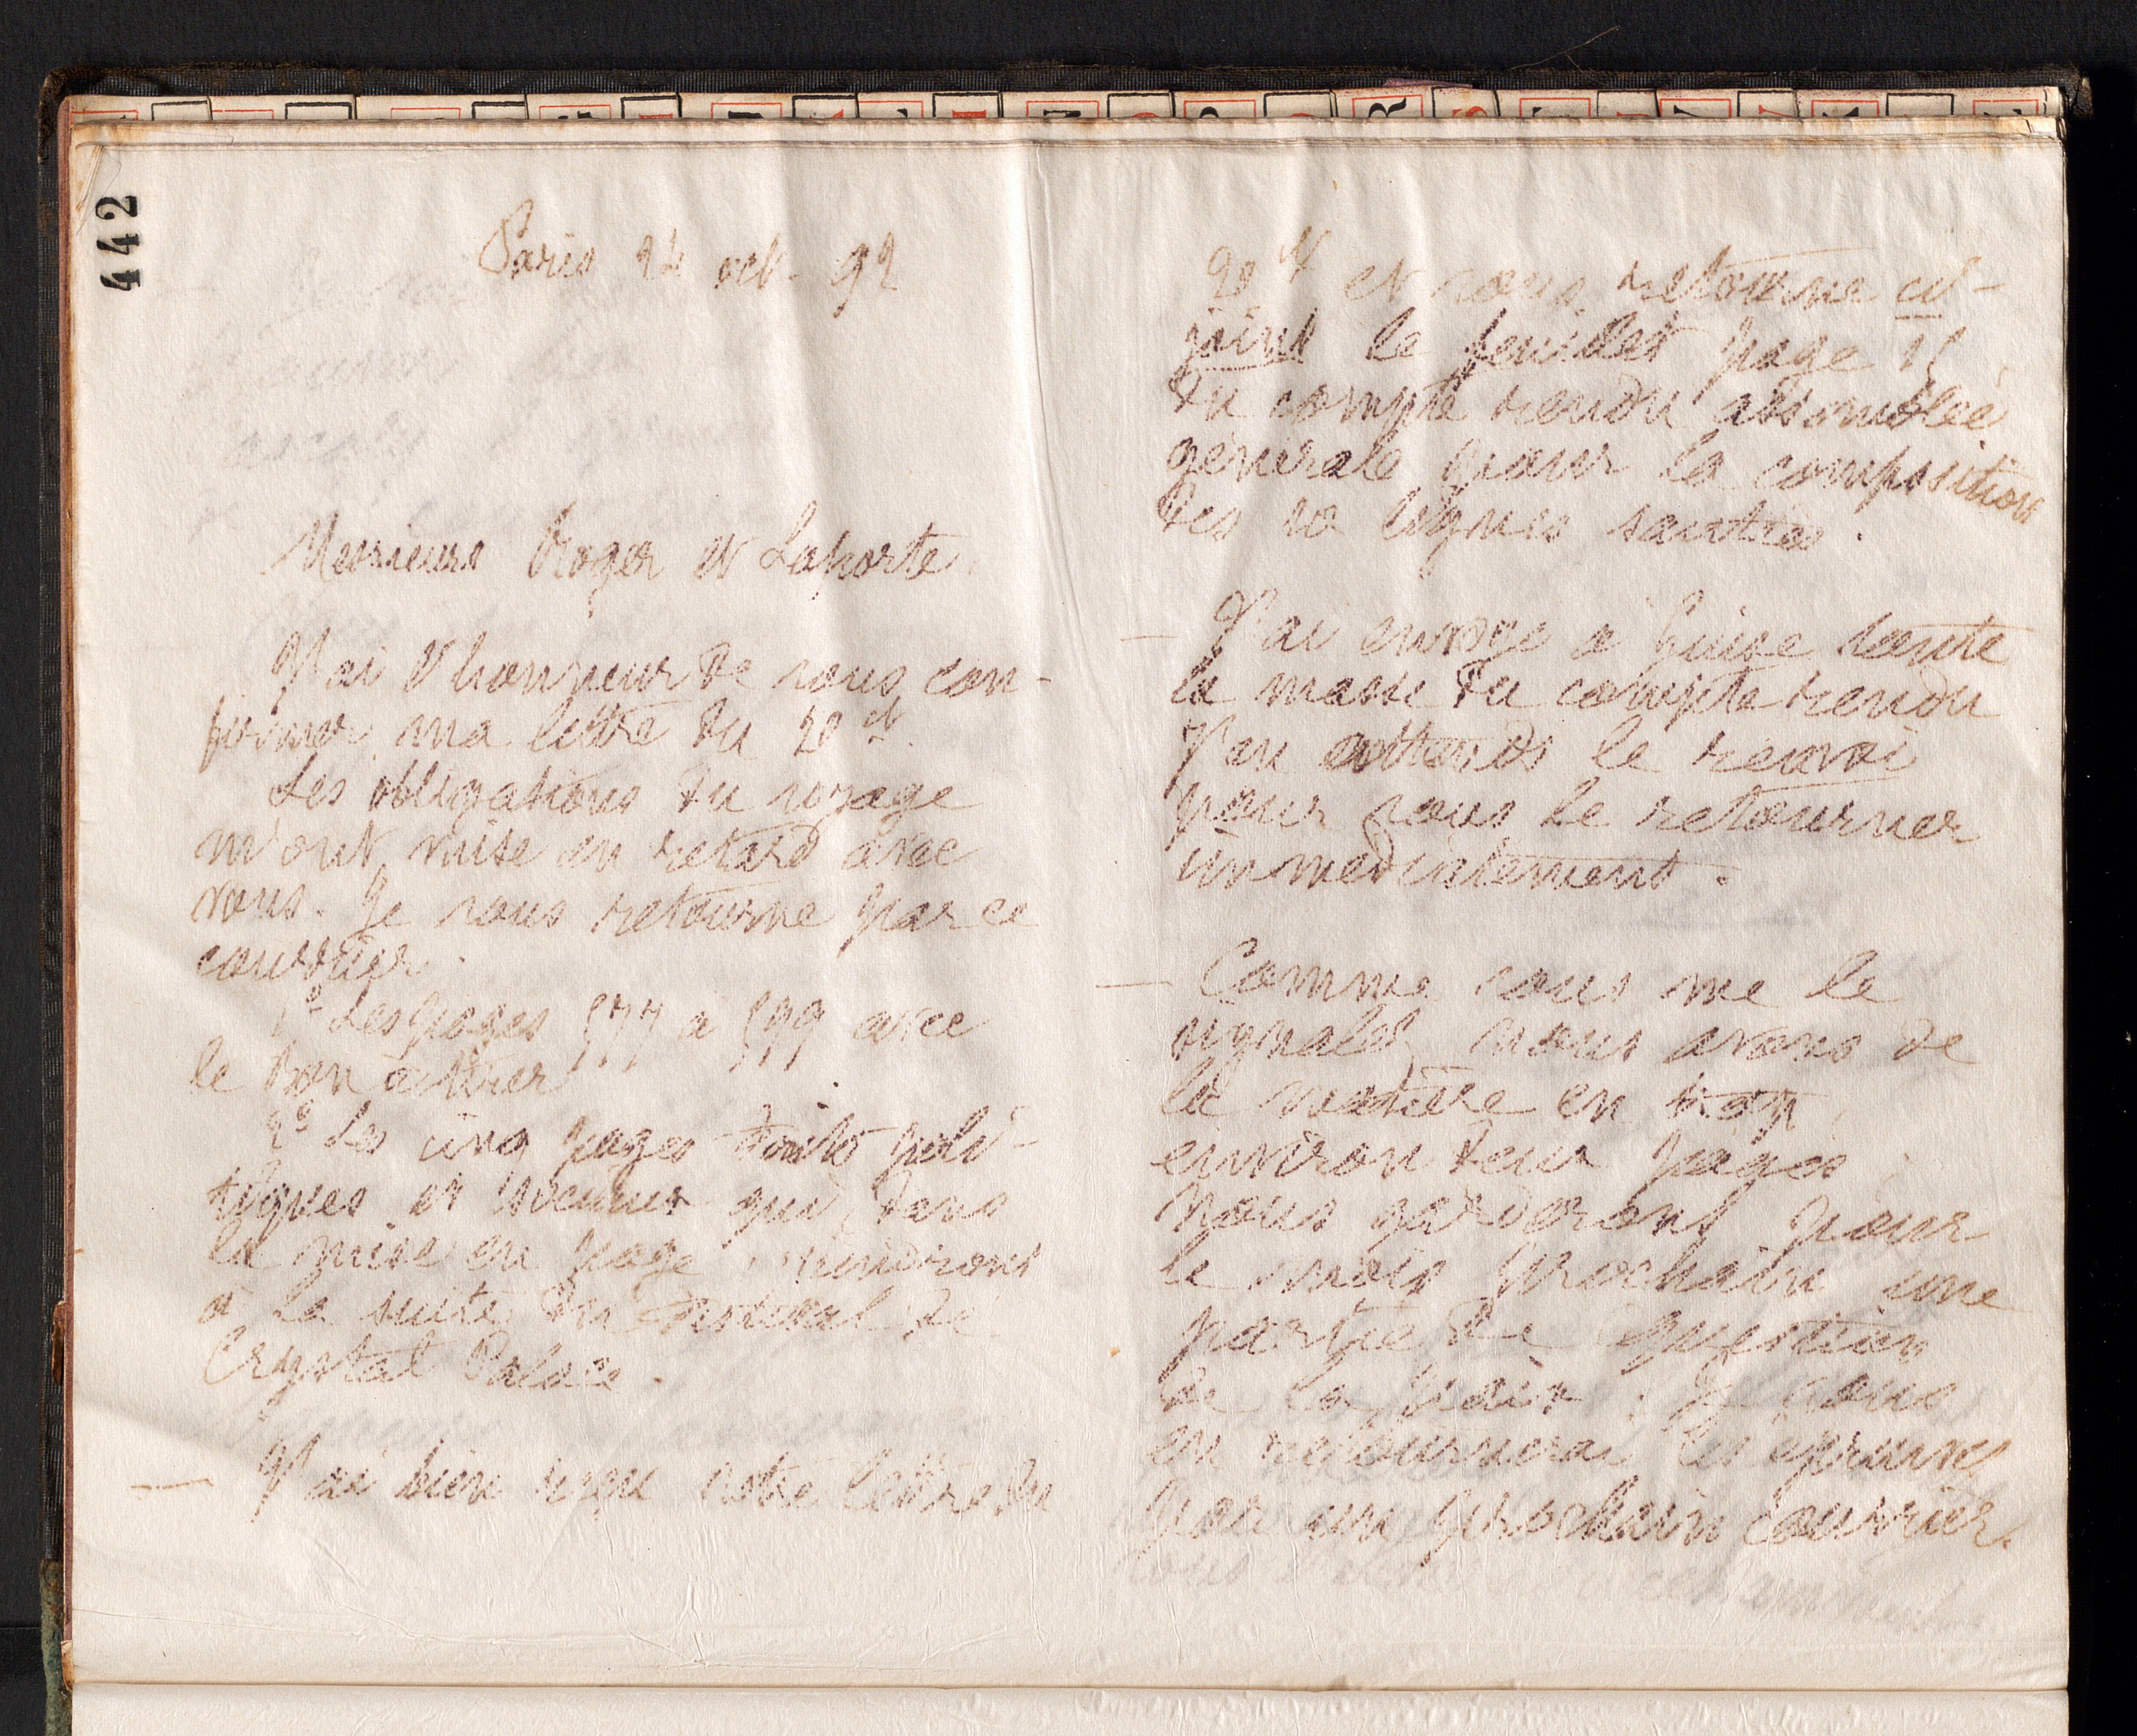 442
Paris 24 oct. 92
Messieurs Roger et Laporte,
J'ai l'honneur de vous con-
firmer ma lettre du 20 ct.
Les obligations du voyage
m'ont mise en retard avec
vous. Je vous retourne par ce
courrier.
1o Les pages 577 à 599 avec
le bon à tirer.
2o Les cinq pages droits poli-
tiques et qui, dans
la mise en page, viendront
à la suite du Festival de
Crystal Palace.
— J'ai bien reçu votre lettre du
20 ct et vous retourne ci-
joint le feuillet page 15
du compte rendu assemblée
générale pour la composition
des 10 lignes sautées.
— J'ai envoyé à Guise toute
la masse du compte rendu
J'en attends le renvoi
pour vous le retourner
immédiatement.
— Comme vous me le
signalez, nous avons de
la matière en trop,
environ deux pages;
nous garderons pour
le mois prochain une
partie de Question
de la paix. Je vous
en retournerai les épreuves
par un prochain courrier.